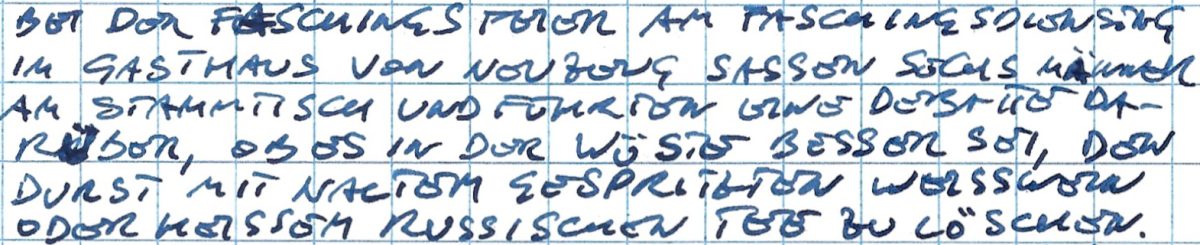 BEI DER FASCHINGSFEIER AM FASCHINGSDIENSTAG
IM GASTHAUS VON NEUZEUG SASSEN SECHS MÄNNER
AM STAMMTISCH UND FÜHRTEN EINE DEBATTE DA-
RÜBER, OB ES IN DER WÜSTE BESSER SEI, DEN
DURST MIT KALTEM GESPRITZTEN WEISSWEIN
ODER HEISSEM RUSSISCHEN TEE ZU LÖSCHEN.